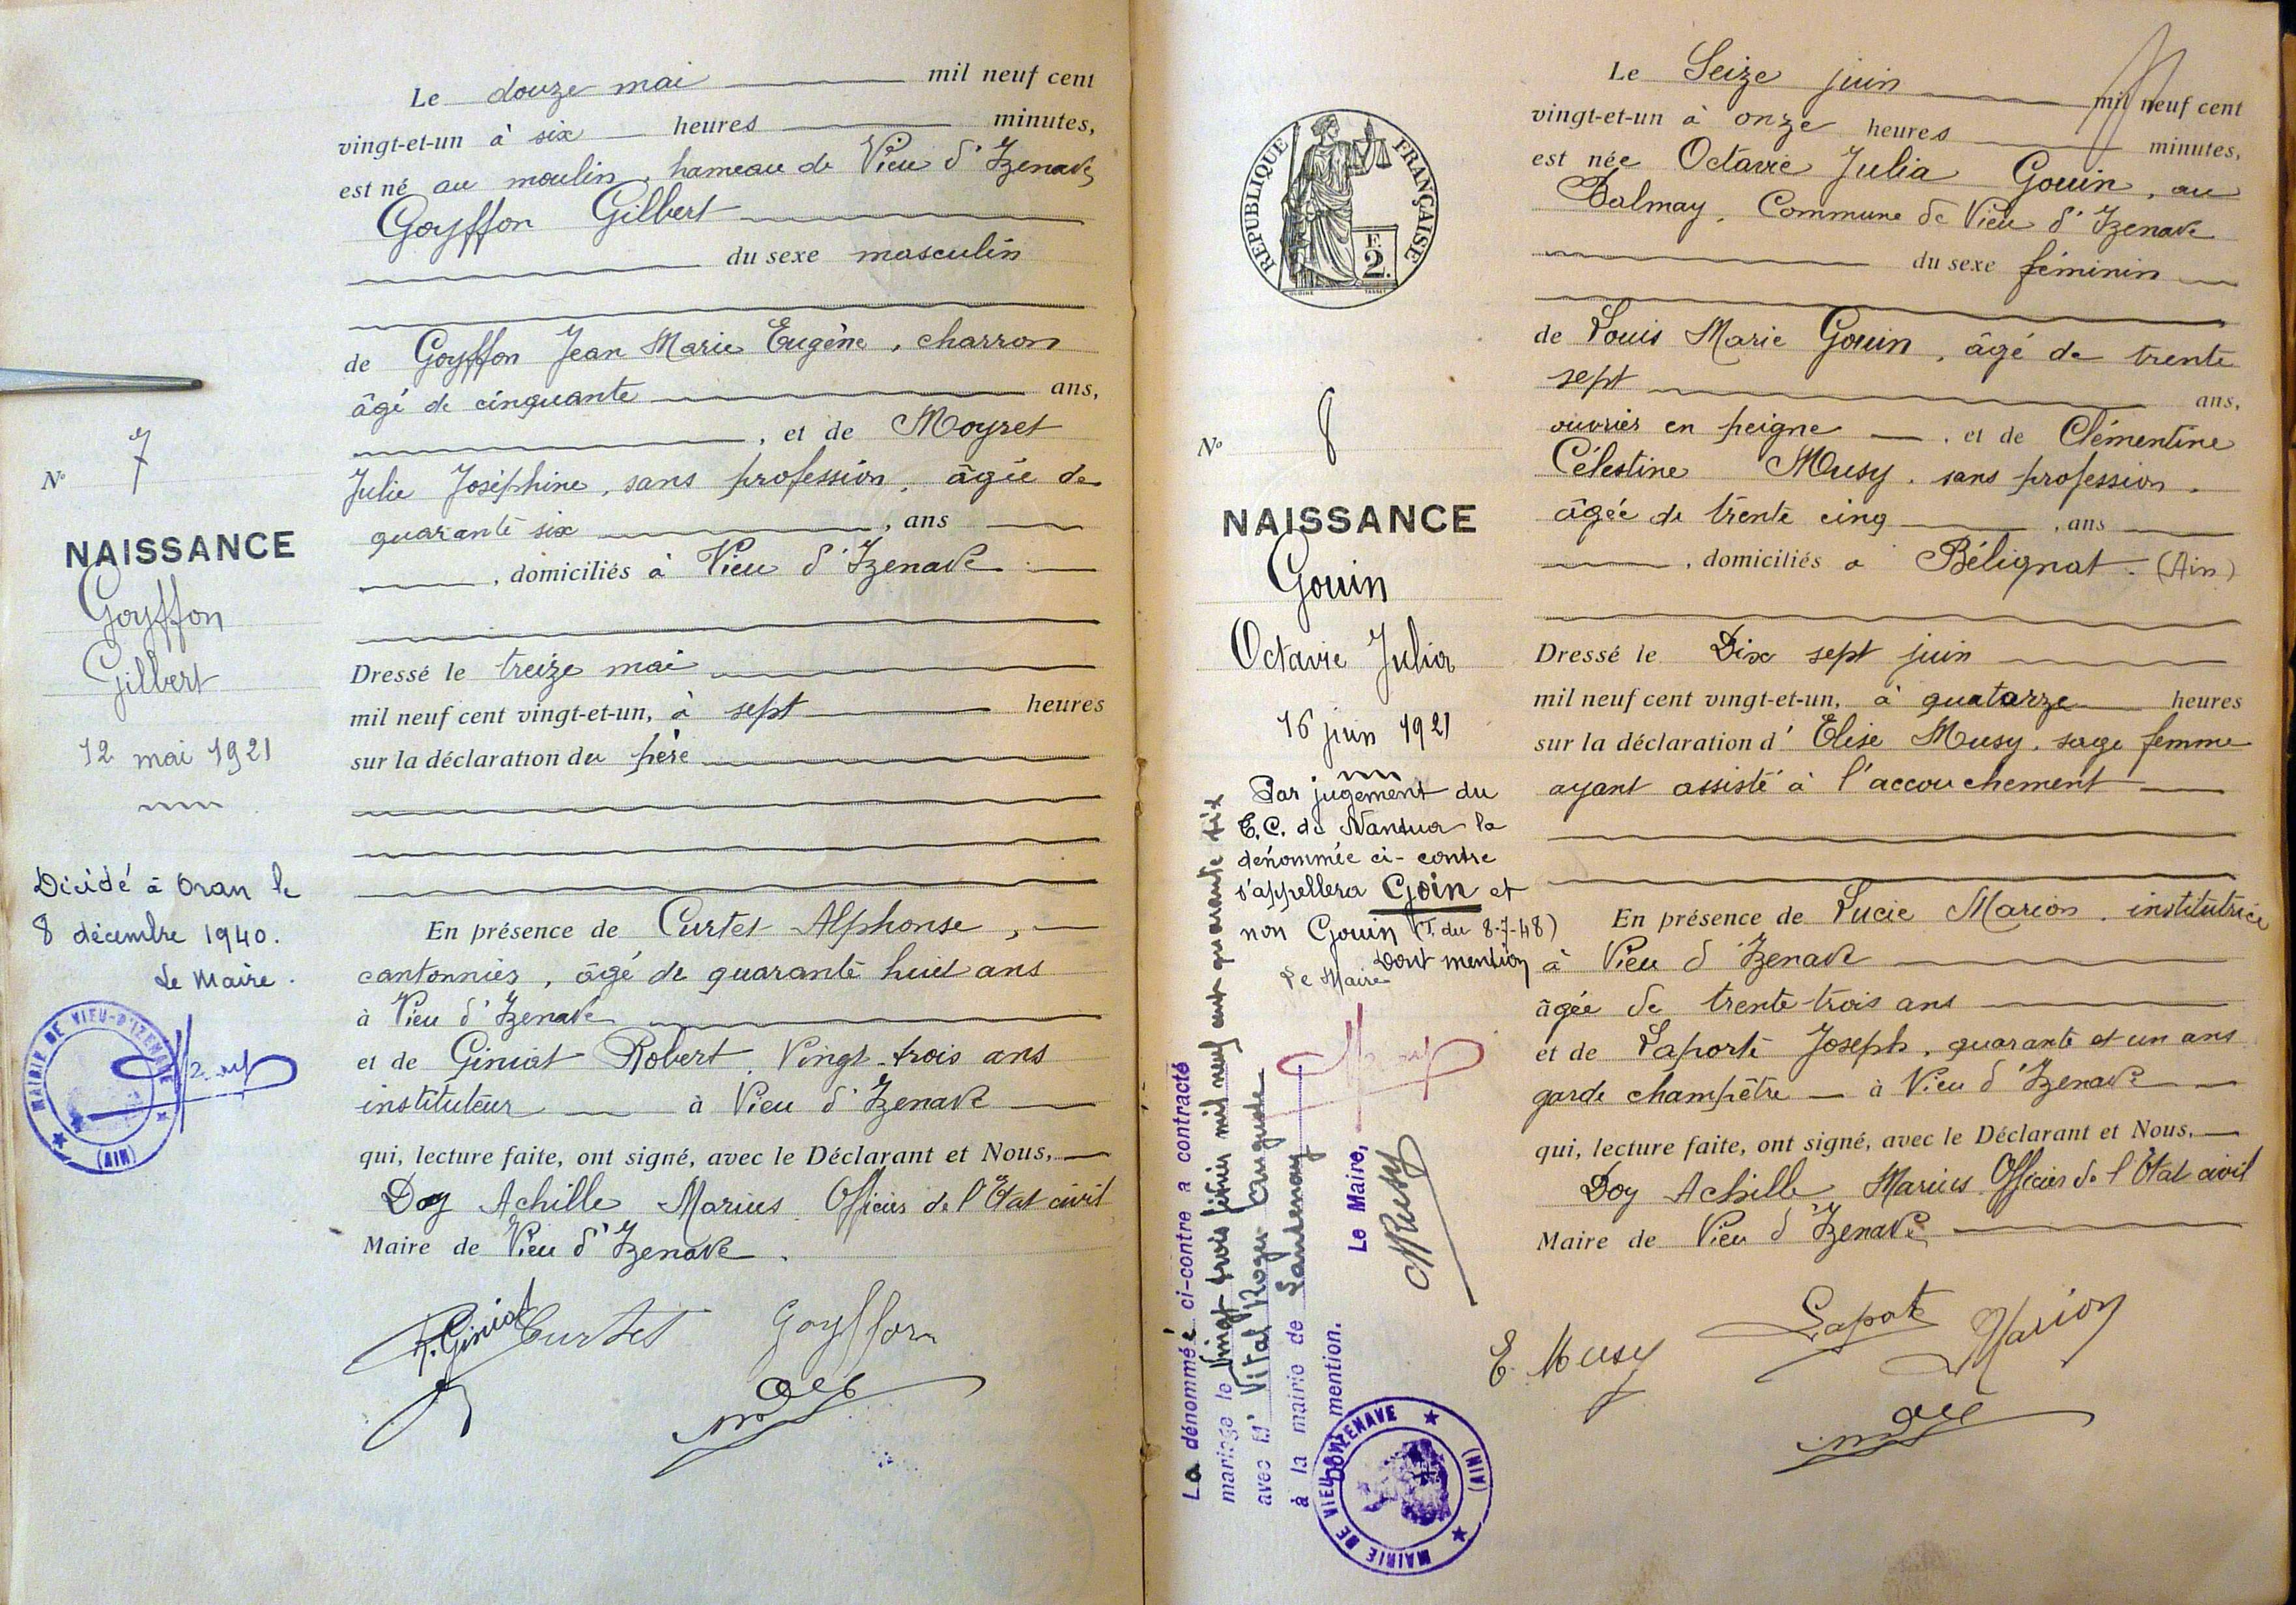 Le douze mai mil neuf cent
vingt-et-un à six heures minutes,
est né au moulin, hameau de Vieu d'Izenave
Goyffon Gilbert
du sexe masculin
de Goyffon Jean Marie Eugène, charron
âgé de cinquante ans,
, et de Moyret
Julie Joséphine, sans profession, âgée de
quarante six , ans
, domiciliés à Vieu d'Izenave
Dressé le treize mai
mil neuf cent vingt-et-un, à sept heures
sur la déclaration du père
En présence de Curtet Alphonse,
cantonnier, âgé de quarante huit ans
à Vieu d'Izenave
et de Giniat Robert, Vingt-trois ans
instituteur à Vieu d'Izenave
qui, lecture faite, ont signé, avec le Déclarant et Nous,
Doy Achille Marius Officier de l'Etat civil
Maire de Vieu d'Izenave.
R. Giniat Curtet Goyffon
Doy
No 7
NAISSANCE
Goyffon
Gilbert
12 mai 1921
Décidé à Oran le
8 décembre 1940.
Le Maire.
MAIRIE DE VIEU-D'IZENAVE
(AIN)
REPUBLIQUE FRANÇAISE
F.
2.
No 8
NAISSANCE
Gouin
Octavie Julia
16 juin 1921
Par jugement du
T.C. de Nantua la
dénommée ci-contre
s'appellera Goin et
non Gouin (T. du 8-7-48)
Dont mention
Le Maire
La dénommée ci-contre a contracté
mariage le Vingt trois février mil neuf cent quarante six
avec Mr Vital Roger
à la mairie de
DONT mention.
Le Maire,
MAIRIE DE VIEU-D'IZENAVE
(AIN)
Le Seize juin mil neuf cent
vingt-et-un à onze heures minutes,
est née Octavie Julia Gouin, au
Balmay, Commune de Vieu d'Izenave
du sexe féminin
de Louis Marie Gouin, âgé de trente
sept ans,
ouvrier en peigne , et de Clémentine
Célestine Musy, sans profession,
âgée de trente cinq , ans
, domiciliés à Bélignat (Ain)
Dressé le Dix sept juin
mil neuf cent vingt-et-un, à quatorze heures
sur la déclaration d'Elise Musy, sage femme
ayant assisté à l'accouchement
En présence de Lucie Marion, institutrice
à Vieu d'Izenave
âgée de trente-trois ans
et de Laporte Joseph, quarante et un ans
garde champêtre à Vieu d'Izenave
qui, lecture faite, ont signé, avec le Déclarant et Nous,
Doy Achille Marius Officier de l'Etat civil
Maire de Vieu d'Izenave
E. Musy Laporte Marion
Doy